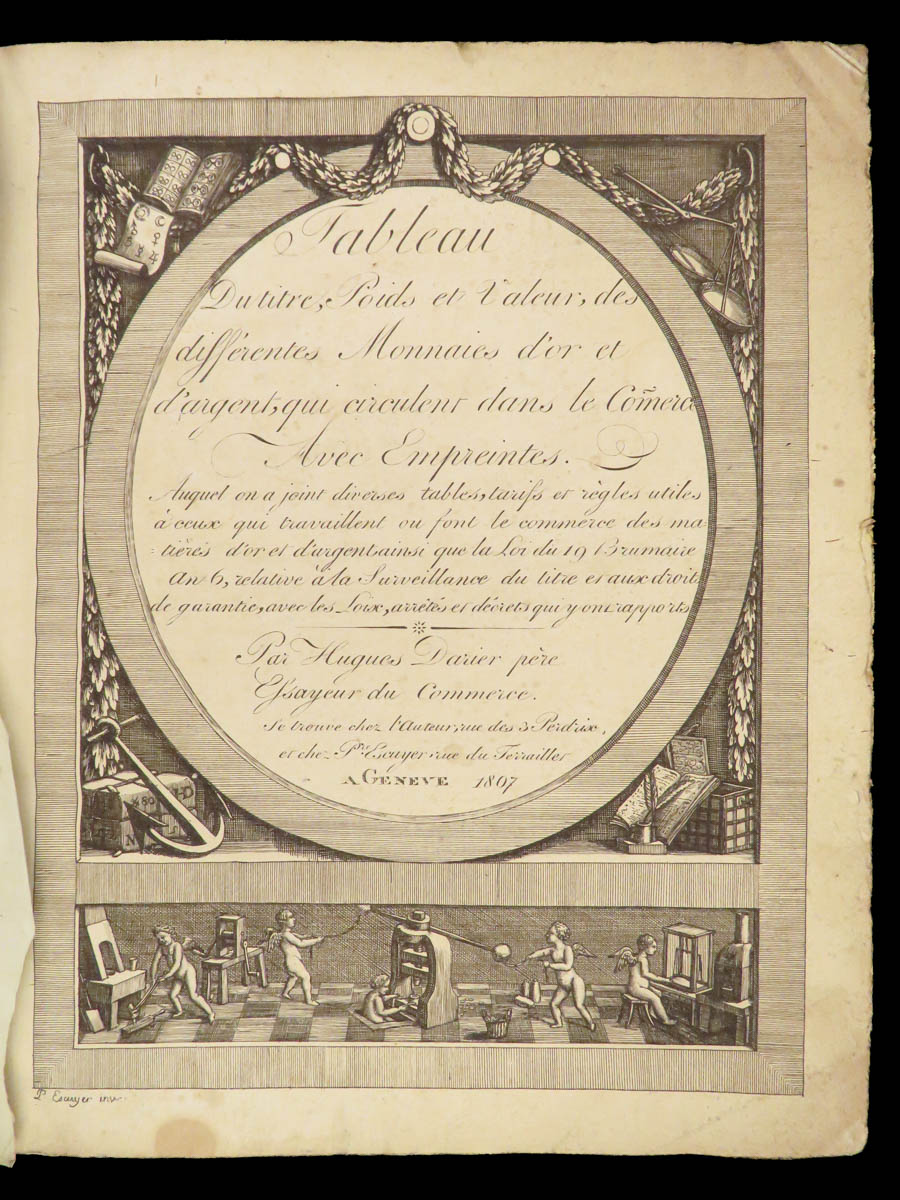 Tableau
Du titre, Poids et Valeur, des
différentes Monnaies d'or et
d'argent, qui circulent dans le Com̃erce
Avec Empreintes.
Auquel on a joint diverses tables, tarifs et règles utiles
à ceux qui travaillent ou font le commerce des ma-
-tières d'or et d'argent, ainsi que la Loi du 19 Brumaire
An 6, relative à la Surveillance du titre et aux droits
de garantie, avec les Loix, arrêtés et décrets qui y ont rapports
Par Hugues Darier père
Eſsayeur du Commerce.
Se trouve chez l'Auteur, rue des 3 Perdrix,
et chez Escuyer rue du Terrailler
A GENEVE 1807
P Escuyer inv